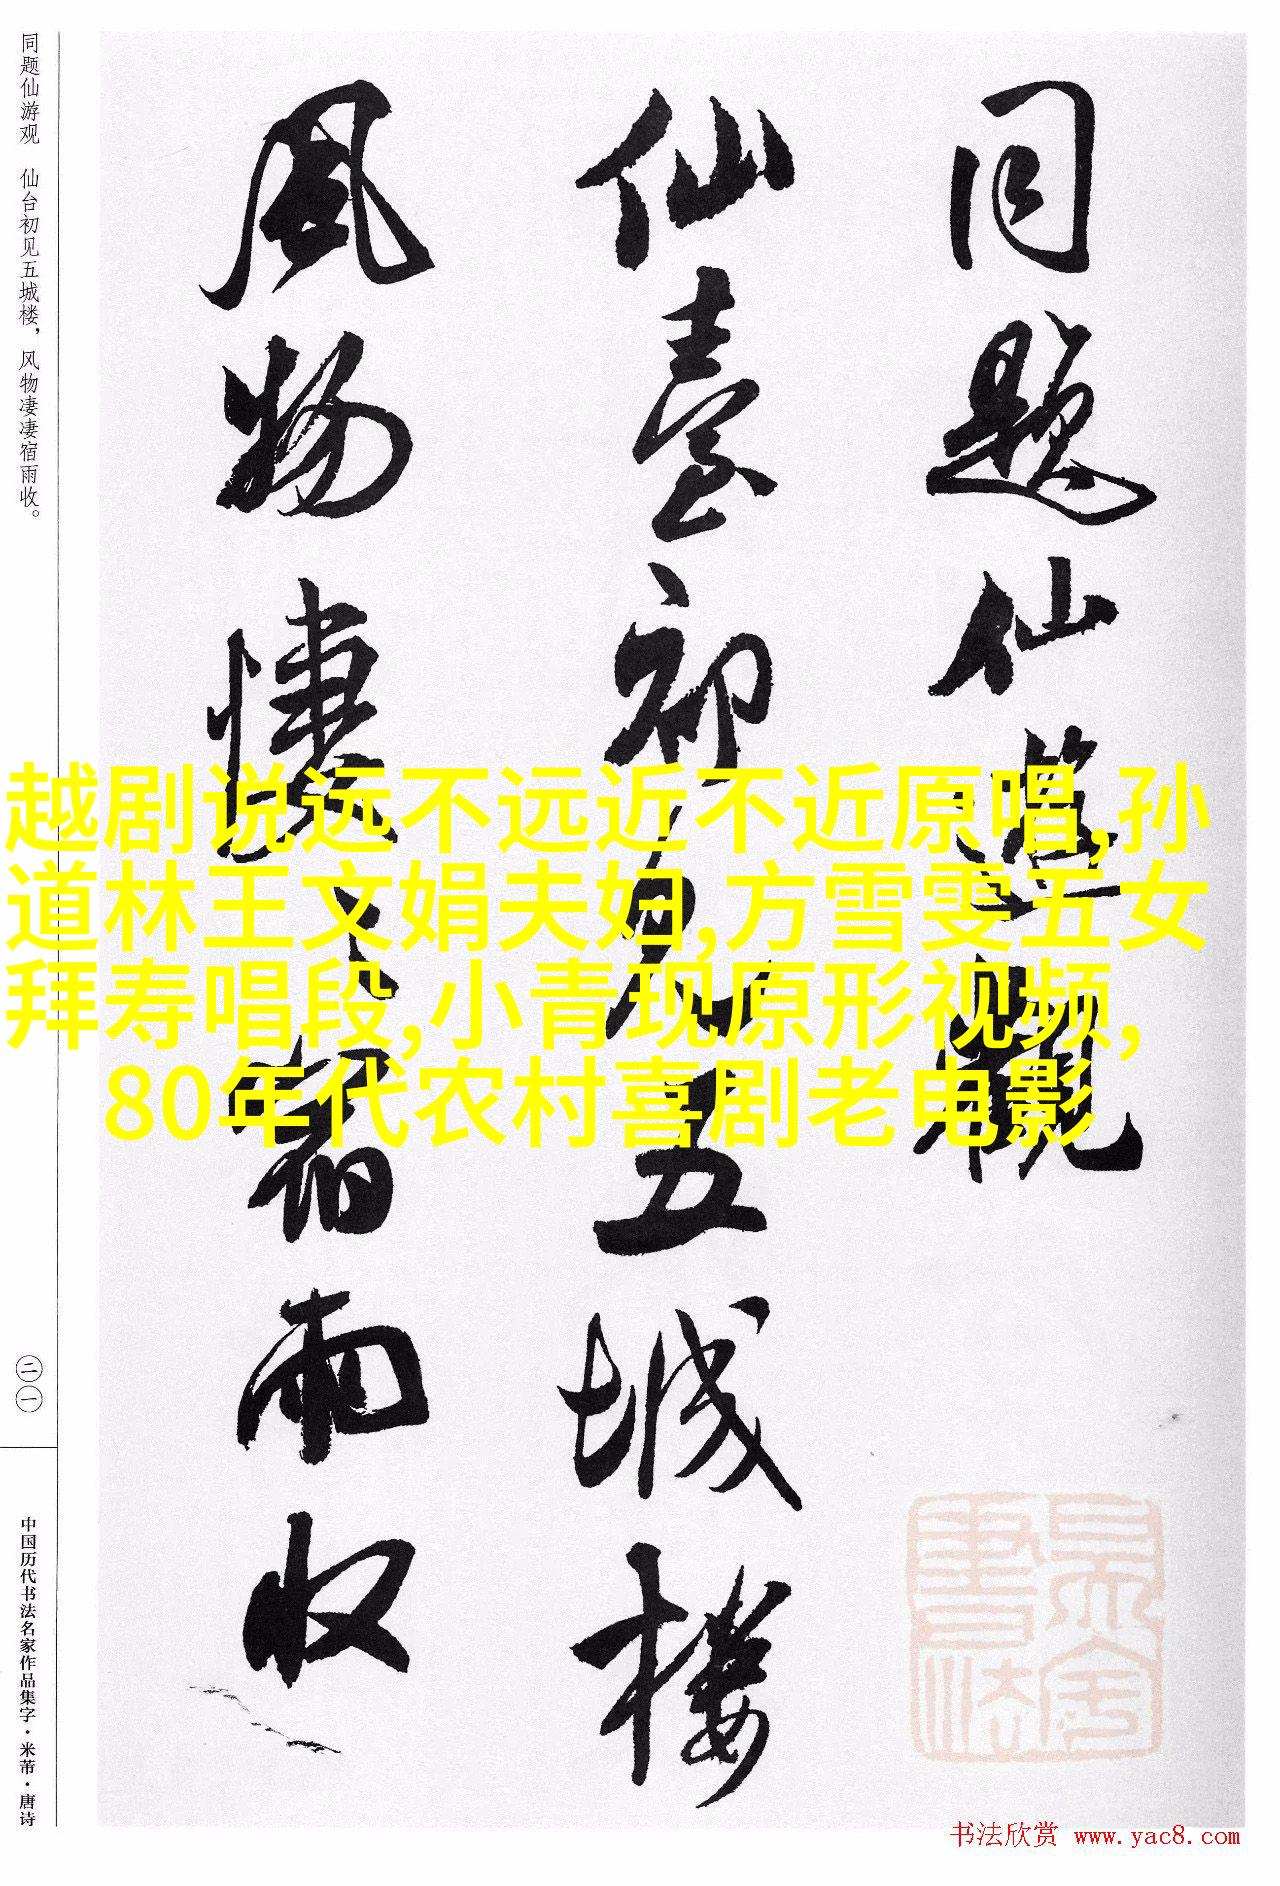 同题仙游观 仙台初见五城楼，风物凄凄宿雨收。
二一
中国历代书法名家作品集字·米芾·唐诗
同题仙遊觀
仙臺初見五城樓
風物悽々宿雨收
越剧说远不远近不近原唱,孙
道林王文娟夫妇,方雪雯五女
拜寿唱段,小青现原形视频,
80年代农村喜剧老电影
书法欣赏 www.yac8.com